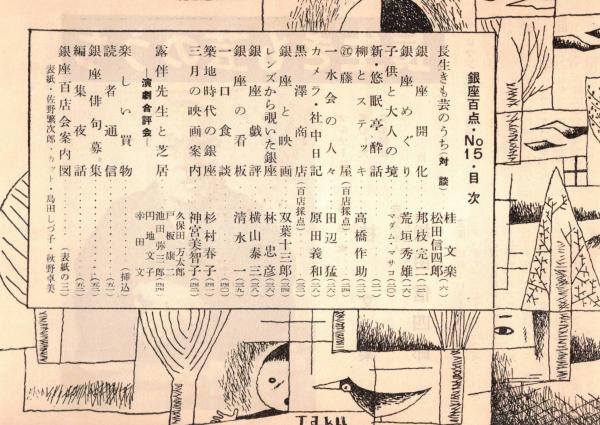 銀座百点・No15・目次
長生きも芸のうち(対談) 桂文楽 松田信四郎
銀座開化 邦枝完二
銀座めぐり 荒垣秀雄
子供と大人の境 マダム・マサコ
新・悠眠亭酔話
柳とステッキ 高橋作助
近藤屋(百店採点)
一水会の人々 田辺猛
カメラ・社中日記 原田義和
黒澤商店(百店採点)
銀座と映画 双葉十三郎
レンズから覗いた銀座 林忠彦
銀座戯評 横山泰三
銀座の看板 清水一
一口食談
築地時代の銀座 杉村春子
三月の映画案内 神宮美智子
露伴先生と芝居 ―演劇合評会― 久保田万太郎 戸板康二 池田弥三郎 円地文子 幸田文
楽しい買物 (挿込)
読者通信
銀座俳句募集
編集夜話
銀座百店会案内図 (表紙の三)
表紙・佐野繁次郎・カット・島田しづ子・秋野卓美
Taku